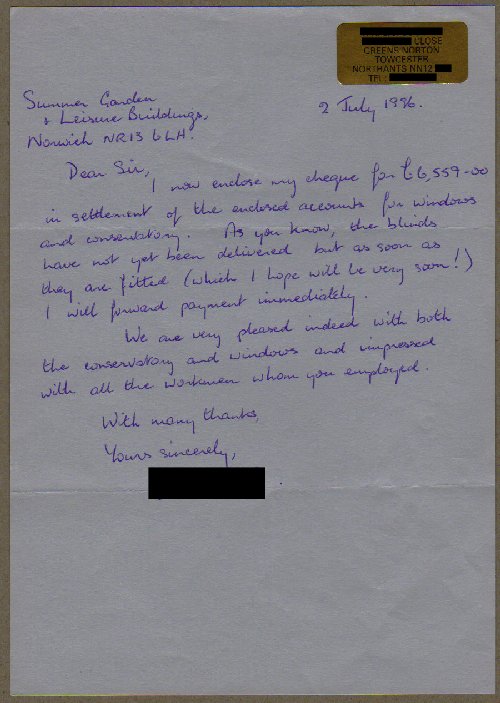 CLOSE
GREENS NORTON
TOWCESTER
NORTHANTS NN12
TEL:
2 July 1996.
Summer Garden
& Leisure Buildings,
Norwich NR13 6LH.
Dear Sir,
I now enclose my cheque for £6,559-00
in settlement of the enclosed accounts for windows
and conservatory. As you know, the blinds
have not yet been delivered but as soon as
they are fitted (which I hope will be very soon!)
I will forward payment immediately.
We are very pleased indeed with both
the conservatory and windows and impressed
with all the workmen whom you employed.
With many thanks,
Yours sincerely,